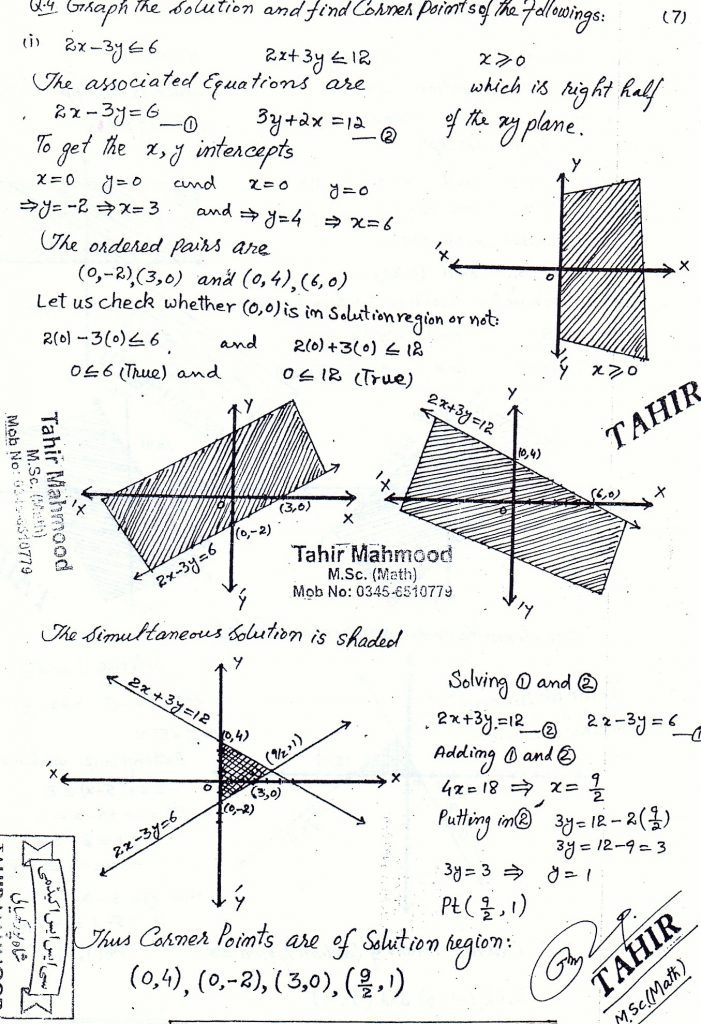 Q.4 Graph the Solution and find Corner Points of the Followings: (7)
(i) 2x-3y≤6 2x+3y≤12 x≥0
The associated Equations are which is right half
2x-3y=6 — ① 3y+2x=12 — ② of the xy plane.
To get the x, y intercepts
x=0 y=0 and x=0 y=0
⇒y=-2 ⇒x=3 and ⇒y=4 ⇒x=6
The ordered pairs are
(0,-2),(3,0) and (0,4),(6,0)
Let us check whether (0,0) is in Solution region or not:
2(0)-3(0)≤6 and 2(0)+3(0)≤12
0≤6 (True) and 0≤12 (True)
Y
'X
X
0
'Y
x≥0
TAHIR
Y
'X
0
(3,0)
X
(0,-2)
2x-3y=6
'Y
Y
2x+3y=12
(0,4)
'X
0
(6,0)
X
'Y
Tahir Mahmood
M.Sc. (Math)
Mob No: 0345-6510779
Tahir Mahmood
M.Sc. (Math)
Mob No: 0345-6510779
The Simultaneous Solution is shaded
Y
2x+3y=12
(0,4)
(9/2,1)
'X
0
(3,0)
X
(0,-2)
2x-3y=6
'Y
Solving ① and ②
2x+3y=12 — ② 2x-3y=6 — ①
Adding ① and ②
4x=18 ⇒ x=9/2
Putting in ② 3y=12-2(9/2)
3y=12-9=3
3y=3 ⇒ y=1
Pt(9/2,1)
Thus Corner Points are of Solution region:
(0,4), (0,-2), (3,0), (9/2,1)
TAHIR
M.Sc.(Math)